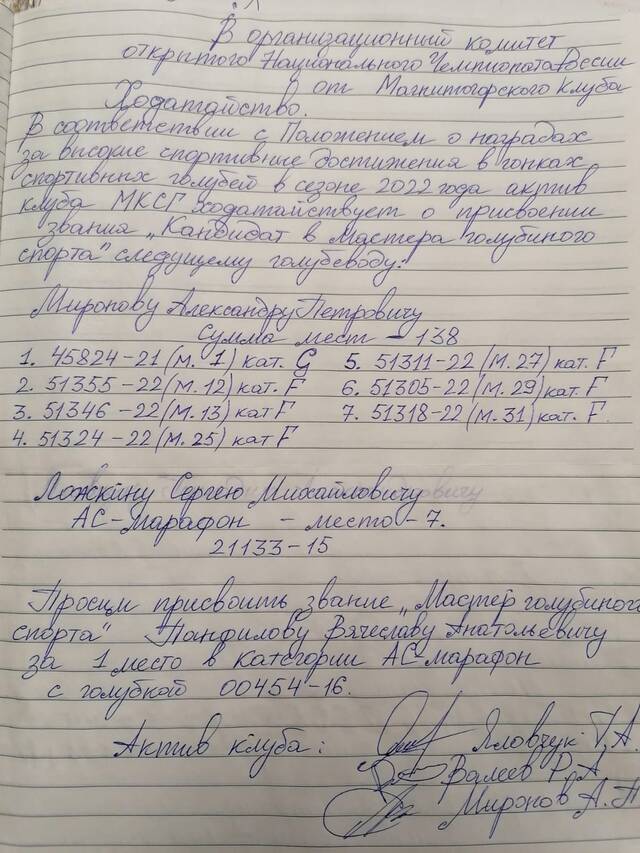 В организационный комитет
открытого Национального Чемпионата России
от Магнитогорского клуба
Ходатайство.
В соответствии с Положением о наградах
за высокие спортивные достижения в гонках
спортивных голубей в сезоне 2022 года актив
клуба МКСГ ходатайствует о присвоении
звания „Кандидат в Мастера голубиного
спорта" следущему голубеводу:
Миронову Александру Петровичу
Сумма мест - 138
1. 45824-21 (м. 1) кат. G 5. 51311-22 (м. 27) кат. F
2. 51355-22 (м. 12) кат. F 6. 51305-22 (м. 29) кат. F
3. 51346-22 (м. 13) кат F 7. 51318-22 (м. 31) кат. F
4. 51324-22 (м. 25) кат F
Ложкину Сергею Михайловичу
АС-марафон - место - 7.
21133-15
Просим присвоить звание „Мастер голубиного
спорта" Панфилову Вячеславу Анатольевичу
за 1 место в категории АС-марафон
с голубкой 00454-16.
Актив клуба: Яловчук Г.А.
Валеев Р.А
Миронов А.П